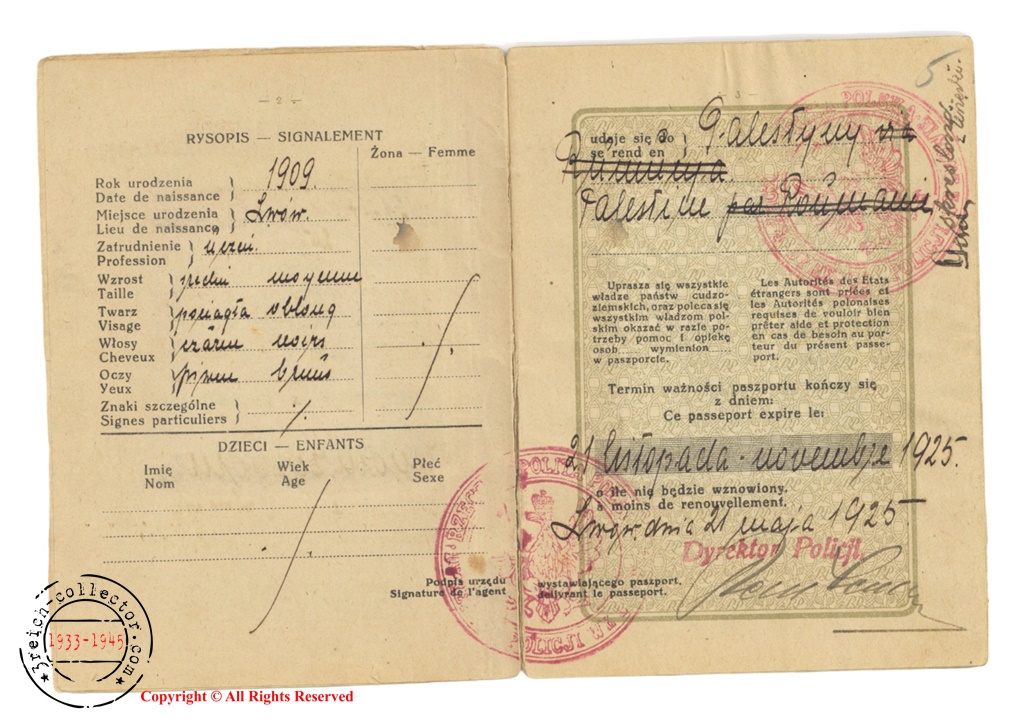 — 2 —
RYSOPIS — SIGNALEMENT
Żona — Femme
Rok urodzenia
Date de naissance
1909.
Miejsce urodzenia
Lieu de naissance
Lwów.
Zatrudnienie
Profession
uczeń.
Wzrost
Taille
średni moyenne
Twarz
Visage
pociągła oblong
Włosy
Cheveux
czarne noirs
Oczy
Yeux
piwne bruns
Znaki szczególne
Signes particuliers
DZIECI — ENFANTS
Imię
Nom
Wiek
Age
Płeć
Sexe
Podpis urzędu
Signature de l'agent
— 3 —
5
udaje się do
se rend en
Palestyny via
Rumunja.
Palestine par Roumanie
Uprasza się wszystkie
władze państw cudzo-
ziemskich, oraz poleca się
wszystkim władzom pol-
skim okazać w razie po-
trzeby pomoc i opiekę
osob...... wymienion......
w paszporcie.
Les Autorités des Etats
étrangers sont priées et
les Autorités polonaises
requises de vouloir bien
prêter aide et protection
en cas de besoin au por-
teur du présent passe-
port.
Termin ważności paszportu kończy się
z dniem:
Ce passeport expire le:
21 listopada - novembre 1925.
o ile nie będzie wznowiony.
a moins de renouvellement.
Lwów, dnia 21 maja 1925
Dyrektor Policji.
wystawiającego paszport.
delivrant le passeport.
3reich-collector.com
1933-1945
Copyright © All Rights Reserved